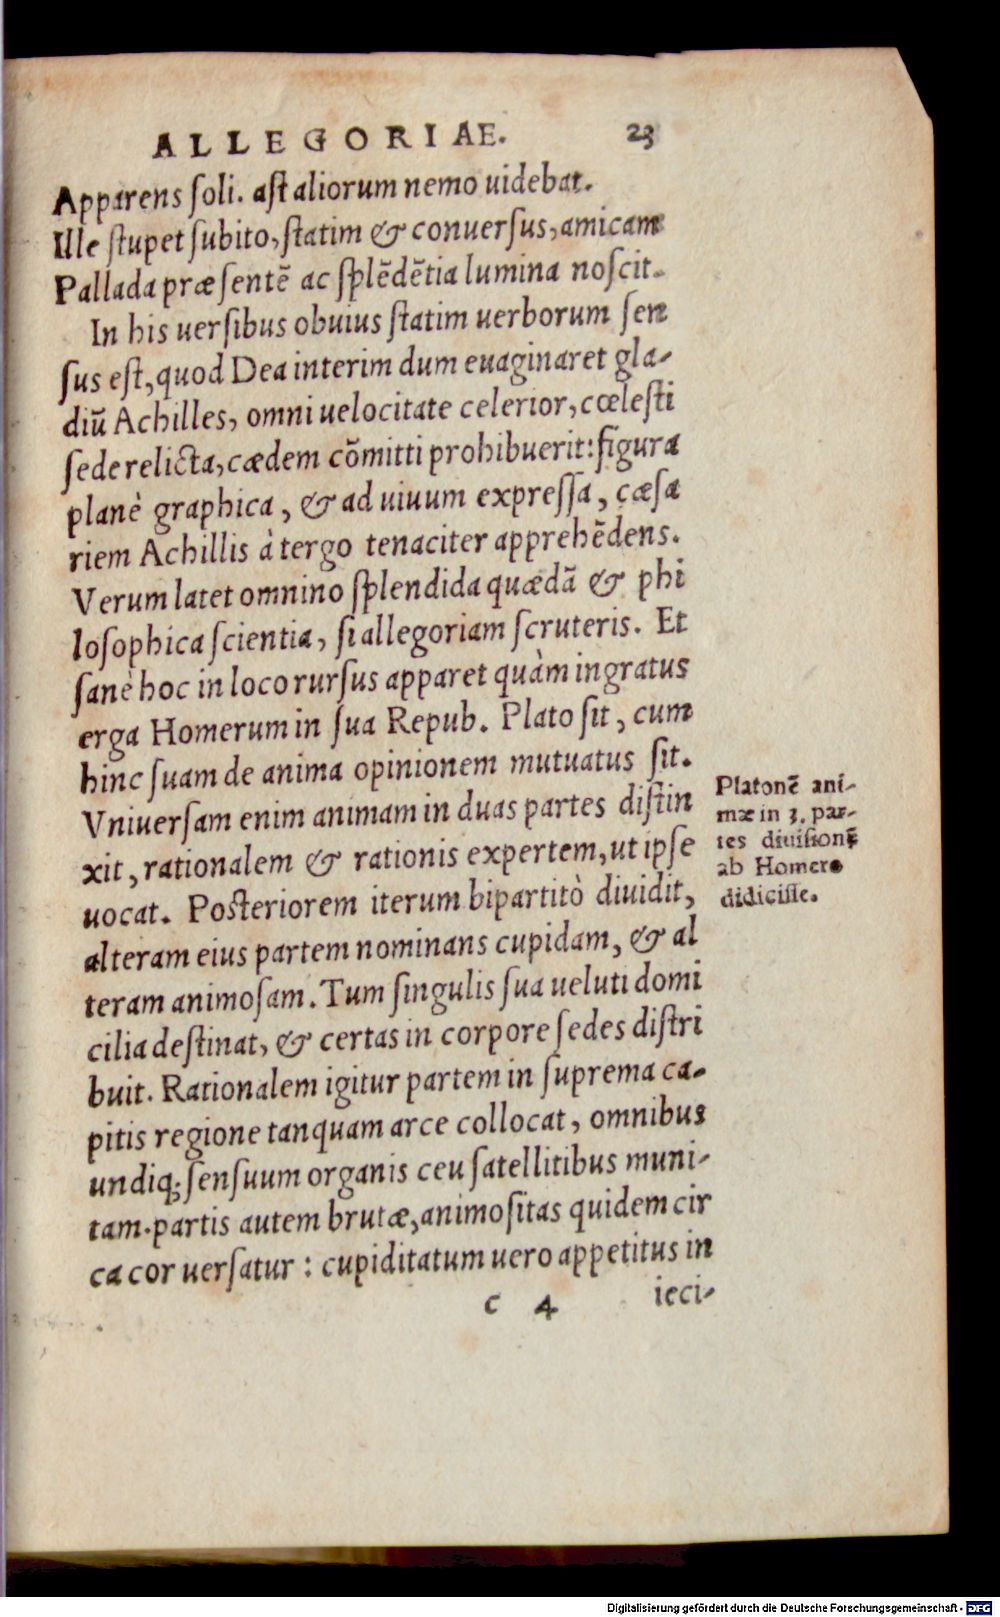 ALLEGORIAE. 23
Apparens ſoli. aſt aliorum nemo uidebat.
Ille ſtupet ſubito, ſtatim & conuerſus, amicam
Pallada præſentē ac ſplēdētia lumina noſcit.
In his uerſibus obuius ſtatim uerborum ſen
ſus eſt, quod Dea interim dum euaginaret gla-
diū Achilles, omni uelocitate celerior, cœleſti
ſede relicta, cædem cōmitti prohibuerit: figura
planè graphica, & ad uiuum expreſſa, cæſa
riem Achillis à tergo tenaciter apprehēdens.
Verum latet omnino ſplendida quædā & phi
loſophica ſcientia, ſi allegoriam ſcruteris. Et
ſanè hoc in loco rurſus apparet quàm ingratus
erga Homerum in ſua Repub. Plato ſit, cum
hinc ſuam de anima opinionem mutuatus ſit.
Vniuerſam enim animam in duas partes diſtin
xit, rationalem & rationis expertem, ut ipſe
uocat. Posteriorem iterum bipartitò diuidit,
alteram eius partem nominans cupidam, & al
teram animoſam. Tum ſingulis ſua ueluti domi
cilia deſtinat, & certas in corpore ſedes diſtri
buit. Rationalem igitur partem in ſuprema ca-
pitis regione tanquam arce collocat, omnibus
undiq; ſenſuum organis ceu ſatellitibus muni-
tam. partis autem brutæ, animoſitas quidem cir
ca cor uerſatur: cupiditatum uero appetitus in
c 4 ieci-
Platonē ani-
mæ in 3. par-
tes diuiſionē
ab Homero
didiciſſe.
Digitalisierung gefördert durch die Deutsche Forschungsgemeinschaft - DFG